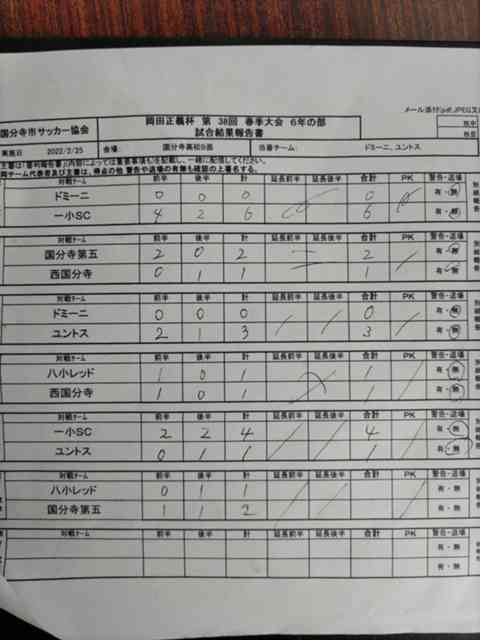 メール添付(pdf,JPEG又
国分寺市サッカー協会 岡田正義杯 第 38回 春季大会 6年の部
試合結果報告書
実施日 2022/2/25 会場: 国分寺高校B面 当番チーム: ドミーニ、ユントス
対戦チーム 前半 後半 計 延長前半 延長後半 合計 PK 警告・退場
ドミーニ 0 0 0 0 有・無
一小SC 4 2 6 6 有・無
対戦チーム 前半 後半 計 延長前半 延長後半 合計 PK 警告・退場
国分寺第五 2 0 2 2 有・無
西国分寺 0 1 1 1 有・無
対戦チーム 前半 後半 計 延長前半 延長後半 合計 PK 警告・退場
ドミーニ 0 0 0 0 有・無
ユントス 2 1 3 3 有・無
対戦チーム 前半 後半 計 延長前半 延長後半 合計 PK 警告・退場
八小レッド 1 0 1 1 有・無
西国分寺 1 0 1 1 有・無
対戦チーム 前半 後半 計 延長前半 延長後半 合計 PK 警告・退場
一小SC 2 2 4 4 有・無
ユントス 0 1 1 1 有・無
対戦チーム 前半 後半 計 延長前半 延長後半 合計 PK 警告・退場
八小レッド 0 1 1 有・無
国分寺第五 1 1 2 有・無
対戦チーム 前半 後半 計 延長前半 延長後半 合計 PK 警告・退場
有・無
有・無